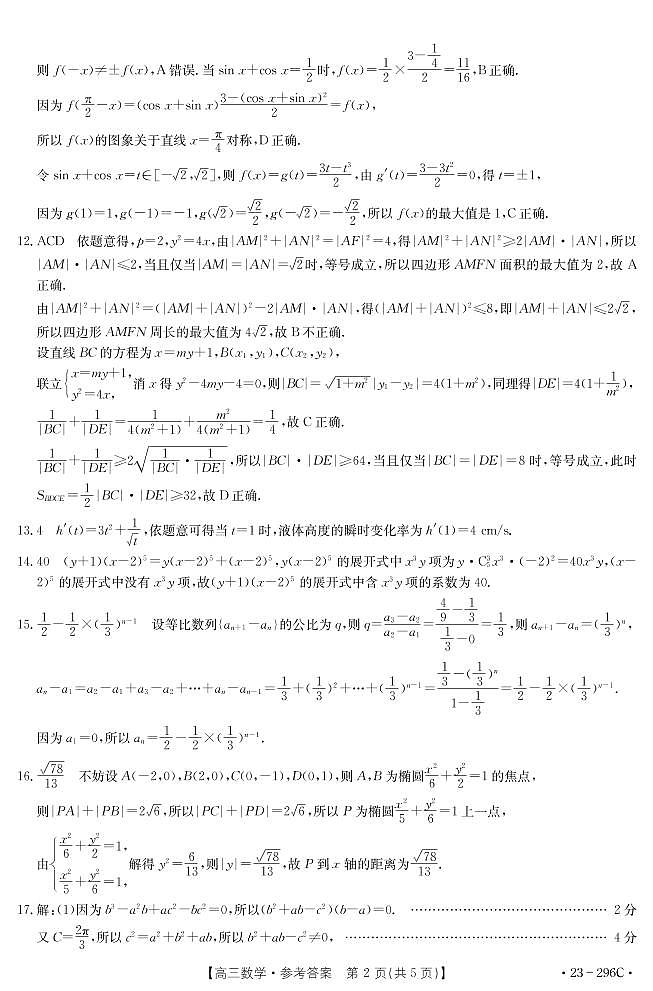 则 f(−x)≠±f(x),A 错误. 当 sin x+cos x=1/2时, f(x)=1/2×(3−1/4)/2=11/16,B 正确.
因为 f(π/2−x)=(cos x+sin x)(3−(cos x+sin x)²)/2=f(x),
所以 f(x)的图象关于直线 x=π/4对称,D 正确.
令 sin x+cos x=t∈[−√2,√2],则 f(x)=g(t)=(3t−t³)/2,由 g′(t)=(3−3t²)/2=0,得 t=±1,
因为 g(1)=1,g(−1)=−1,g(√2)=√2/2,g(−√2)=−√2/2,所以 f(x)的最大值是 1,C 正确.
12. ACD 依题意得,p=2,y²=4x,由|AM|²+|AN|²=|AF|²=4,得|AM|²+|AN|²≥2|AM|·|AN|,所以
|AM|·|AN|≤2,当且仅当|AM|=|AN|=√2时,等号成立,所以四边形 AMFN 面积的最大值为 2,故 A
正确.
由|AM|²+|AN|²=(|AM|+|AN|)²−2|AM|·|AN|,得(|AM|+|AN|)²≤8,即|AM|+|AN|≤2√2,
所以四边形 AMFN 周长的最大值为 4√2,故 B 不正确.
设直线 BC 的方程为 x=my+1,B(x₁,y₁),C(x₂,y₂),
联立{x=my+1, y²=4x, 消 x 得 y²−4my−4=0,则|BC|=√(1+m²)|y₁−y₂|=4(1+m²),同理得|DE|=4(1+1/m²),
1/|BC|+1/|DE|=1/(4(m²+1))+m²/(4(m²+1))=1/4,故 C 正确.
1/|BC|+1/|DE|≥2√(1/|BC|·1/|DE|),所以|BC|·|DE|≥64,当且仅当|BC|=|DE|=8 时,等号成立,此时
S_BDCE=1/2|BC|·|DE|≥32,故 D 正确.
13. 4 h′(t)=3t²+1/√t,依题意可得当 t=1 时,液体高度的瞬时变化率为 h′(1)=4 cm/s.
14. 40 (y+1)(x−2)⁵=y(x−2)⁵+(x−2)⁵,y(x−2)⁵ 的展开式中 x³y 项为 y·C₅³x³·(−2)²=40x³y,(x−
2)⁵ 的展开式中没有 x³y 项,故(y+1)(x−2)⁵ 的展开式中含 x³y 项的系数为 40.
15. 1/2−1/2×(1/3)ⁿ⁻¹ 设等比数列{aₙ₊₁−aₙ}的公比为 q,则 q=(a₃−a₂)/(a₂−a₁)=(4/9−1/3)/(1/3−0)=1/3,则 aₙ₊₁−aₙ=(1/3)ⁿ,
aₙ−a₁=a₂−a₁+a₃−a₂+⋯+aₙ−aₙ₋₁=1/3+(1/3)²+⋯+(1/3)ⁿ⁻¹=(1/3−(1/3)ⁿ)/(1−1/3)=1/2−1/2×(1/3)ⁿ⁻¹.
因为 a₁=0,所以 aₙ=1/2−1/2×(1/3)ⁿ⁻¹.
16. √78/13 不妨设 A(−2,0),B(2,0),C(0,−1),D(0,1),则 A,B 为椭圆x²/6+y²/2=1 的焦点,
则|PA|+|PB|=2√6,所以|PC|+|PD|=2√6,所以 P 为椭圆x²/5+y²/6=1 上一点,
由{x²/6+y²/2=1, x²/5+y²/6=1, 解得 y²=6/13,则|y|=√78/13,故 P 到 x 轴的距离为√78/13.
17. 解:(1)因为 b³−a²b+ac²−bc²=0,所以(b²+ab−c²)(b−a)=0. ⋯⋯⋯⋯ 2 分
又 C=2π/3,所以 c²=a²+b²+ab,所以 b²+ab−c²≠0, ⋯⋯⋯⋯ 4 分
【高三数学·参考答案 第 2 页(共 5 页)】 ·23−296C·